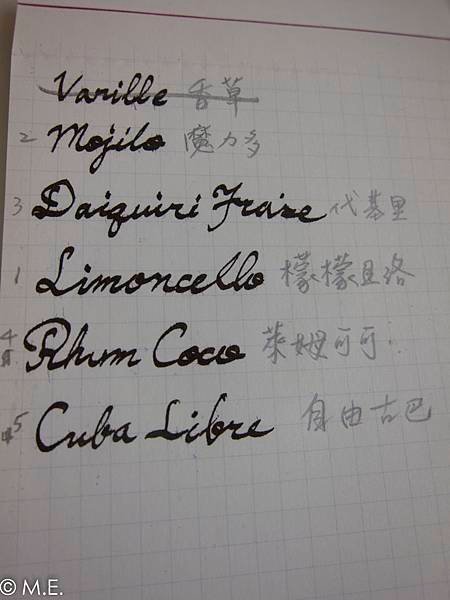 Vanille 香草
2 Mojito 魔力多
3 Daiquiri Fraise 代基里
1 Limoncello 檬檬且洛
4 Rhum Coco 萊姆可可
5 Cuba Libre 自由古巴
© M.E.